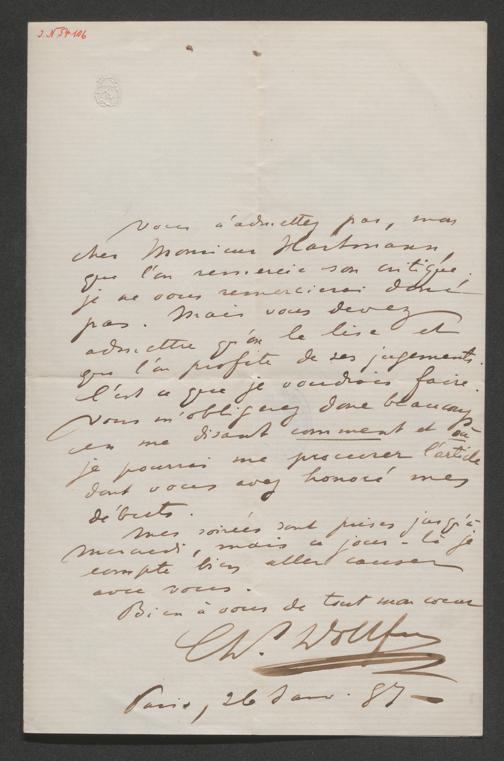 J.N 54.106
Vous n'admettez pas, mon
cher Monsieur Hartmann,
que l'on remercie son critique.
je ne vous remercierai donc
pas. Mais vous devez
admettre qu'on le lise et
que l'on profite de ses jugements.
C'est ce que je voudrais faire.
Vous m'obligerez donc beaucoup
en me disant comment et où
je pourrai me procurer l'article
dont vous avez honoré mes
débuts.
Mes soirées sont prises jusqu'à
mercredi, mais ce jour-là je
compte bien aller causer
avec vous.
Bien à vous de tout mon coeur
Ch.
Paris, 26 Janv. 87